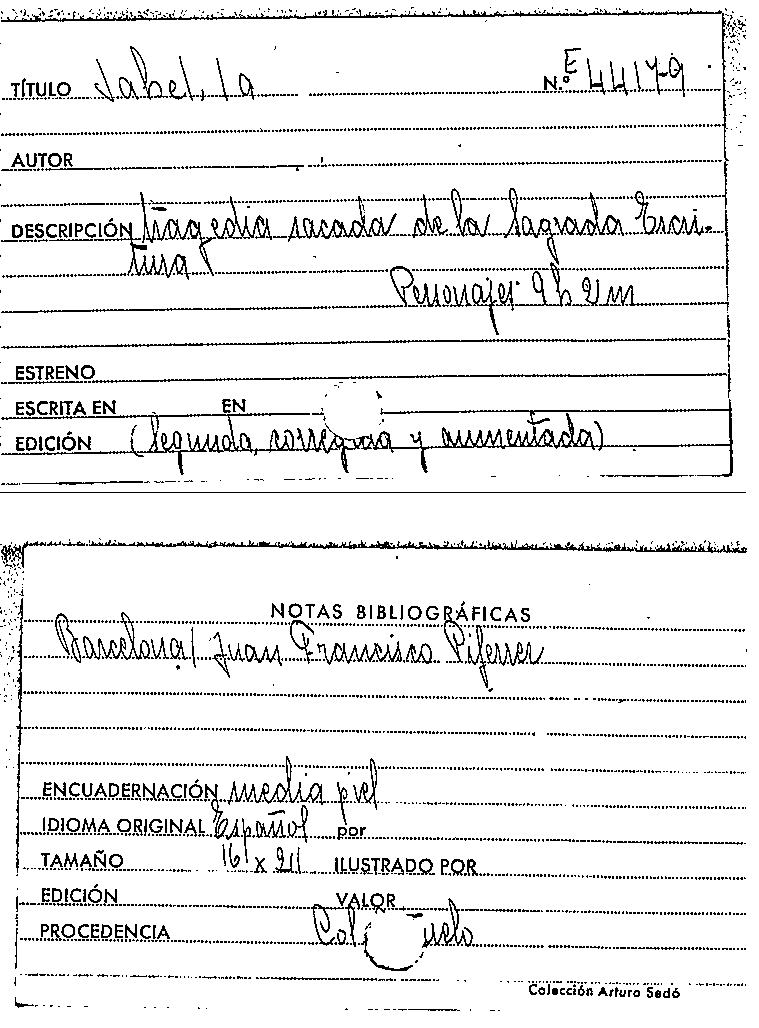 TÍTULO Jahel, la N.º E 44179
AUTOR
DESCRIPCIÓN tragedia sacada de la Sagrada Escri-
tura
Personajes 9 h 2 m
ESTRENO
ESCRITA EN EN
EDICIÓN (Segunda, corregida y aumentada)
NOTAS BIBLIOGRÁFICAS
Barcelona/ Juan Francisco Piferrer
ENCUADERNACIÓN media piel
IDIOMA ORIGINAL Español por
TAMAÑO 16 x 21 ILUSTRADO POR
EDICIÓN VALOR
PROCEDENCIA
Colección Arturo Sedó